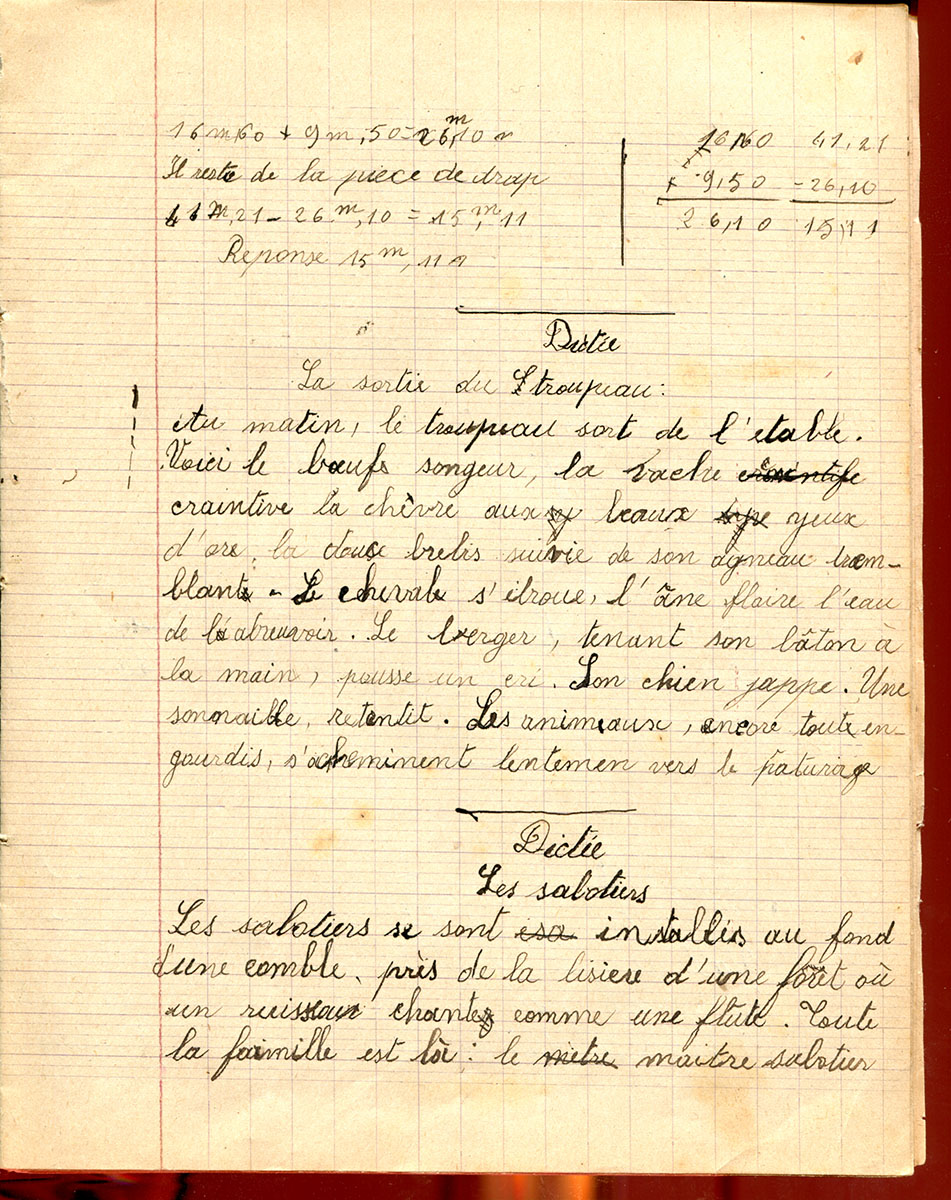 16m,60 + 9m,50 = 26m,10
16,60 41,21
Il reste de la piece de drap
+ 9,50 - 26,10
41m,21 - 26m,10 = 15m,11
26,10 15,11
Reponse 15m,11
Dictée
La sortie du troupeau:
Au matin, le troupeau sort de l'etable.
Voici le bœufs songeur, la vache craintife
craintive la chèvre aux beaux yeux
d'ore, la douce brebis suivie de son agneau trem-
blant. Le chevale s'ebroue, l'âne flaire l'eau
de l'abreuvoir. Le berger, tenant son bâton à
la main, pousse un cri. Son chien jappe. Une
sonnaille, retentit. Les animeaux, encore toute en-
gourdis, s'acheminent lentemen vers le pâturage
Dictée
Les sabotiers
Les sabotiers se sont esa installés au fond
d'une comble, près de la lisiere d'une forêt où
un ruisseau chante comme une flûte. Toute
la famille est là: le metre maitre sabotier